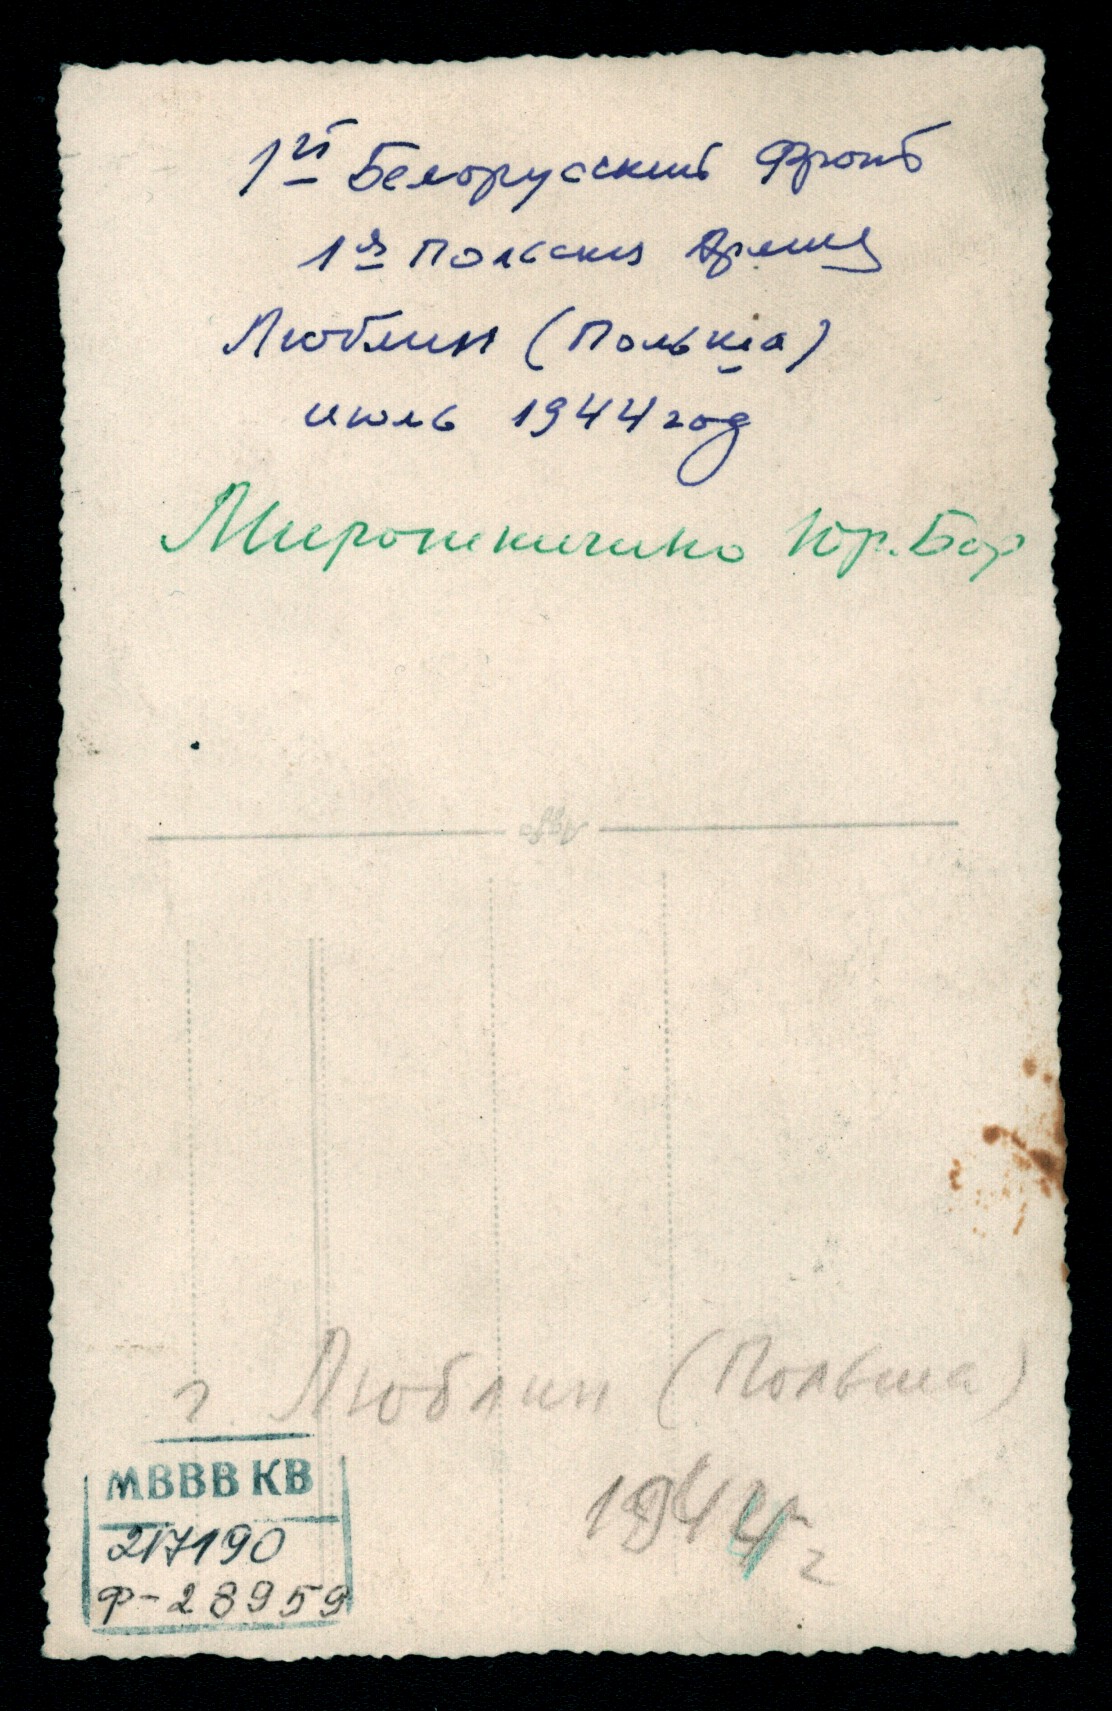 1й Белорусский Фронт
1я Польская Армия
Люблин (Польша)
июль 1944 год
Мирошниченко Юр. Бор
г. Люблин (Польша)
1944 г
МВВВ КВ
217190
Ф-28959